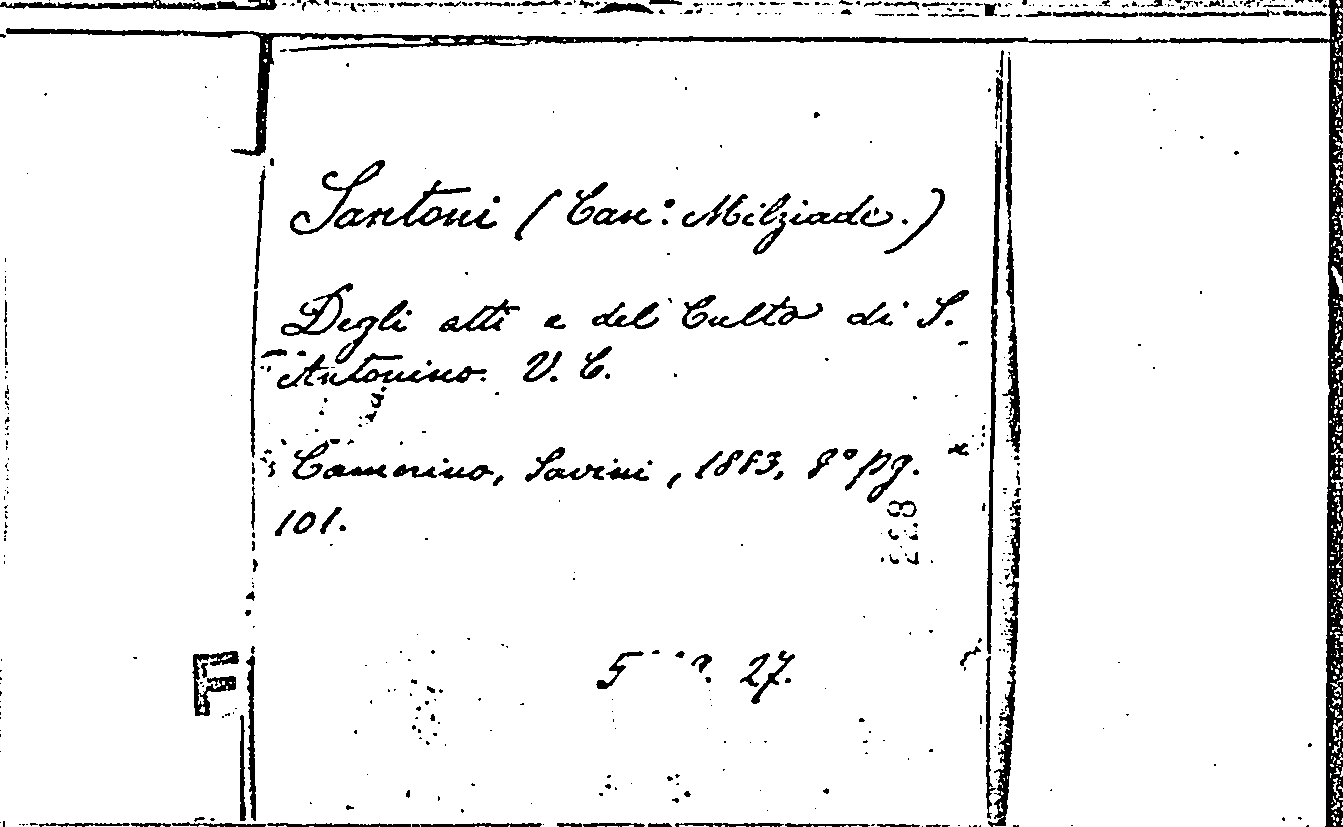 Santoni (Can: Milziade.)
Degli atti e del Culto di S.
Antonino. V. C.
Camerino, Savini, 1883, 8° pg.
101.
228
5 27.
F